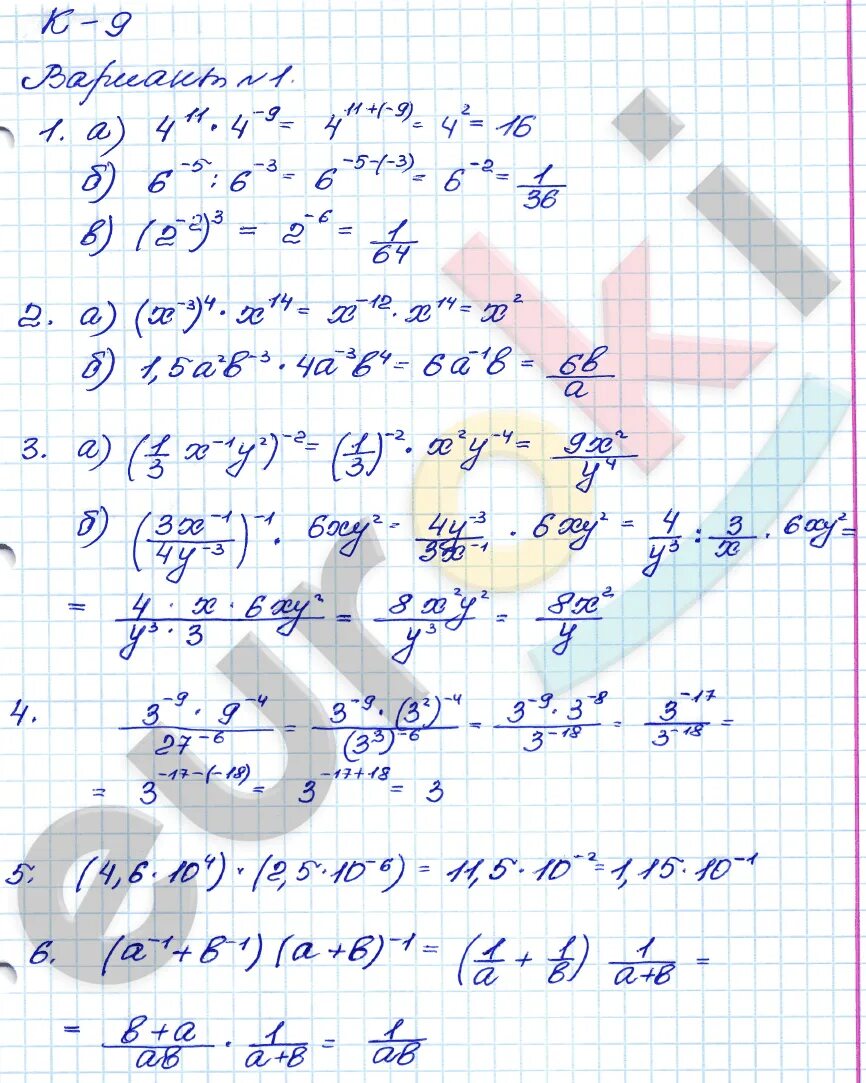 К-9
Вариант №1.
1. а) 4¹¹ · 4⁻⁹ = 4¹¹⁺⁽⁻⁹⁾ = 4² = 16
б) 6⁻⁵ : 6⁻³ = 6⁻⁵⁻⁽⁻³⁾ = 6⁻² = 1/36
в) (2⁻²)³ = 2⁻⁶ = 1/64
2. а) (x⁻³)⁴ · x¹⁴ = x⁻¹² · x¹⁴ = x²
б) 1,5a²b⁻³ · 4a⁻³b⁴ = 6a⁻¹b = 6b/a
3. а) (1/3 x⁻¹y²)⁻² = (1/3)⁻² · x²y⁻⁴ = 9x²/y⁴
б) (3x⁻¹/4y⁻³)⁻¹ · 6xy² = 4y⁻³/3x⁻¹ · 6xy² = 4/y³ : 3/x · 6xy² =
= 4 · x · 6xy²/y³ · 3 = 8x²y²/y³ = 8x²/y
4. 3⁻⁹ · 9⁻⁴/27⁻⁶ = 3⁻⁹ · (3²)⁻⁴/(3³)⁻⁶ = 3⁻⁹ · 3⁻⁸/3⁻¹⁸ = 3⁻¹⁷/3⁻¹⁸ =
= 3⁻¹⁷⁻⁽⁻¹⁸⁾ = 3⁻¹⁷⁺¹⁸ = 3
5. (4,6 · 10⁴) · (2,5 · 10⁻⁶) = 11,5 · 10⁻² = 1,15 · 10⁻¹
6. (a⁻¹ + b⁻¹) (a + b)⁻¹ = (1/a + 1/b) 1/a+b =
= b + a/ab · 1/a+b = 1/ab
euroki